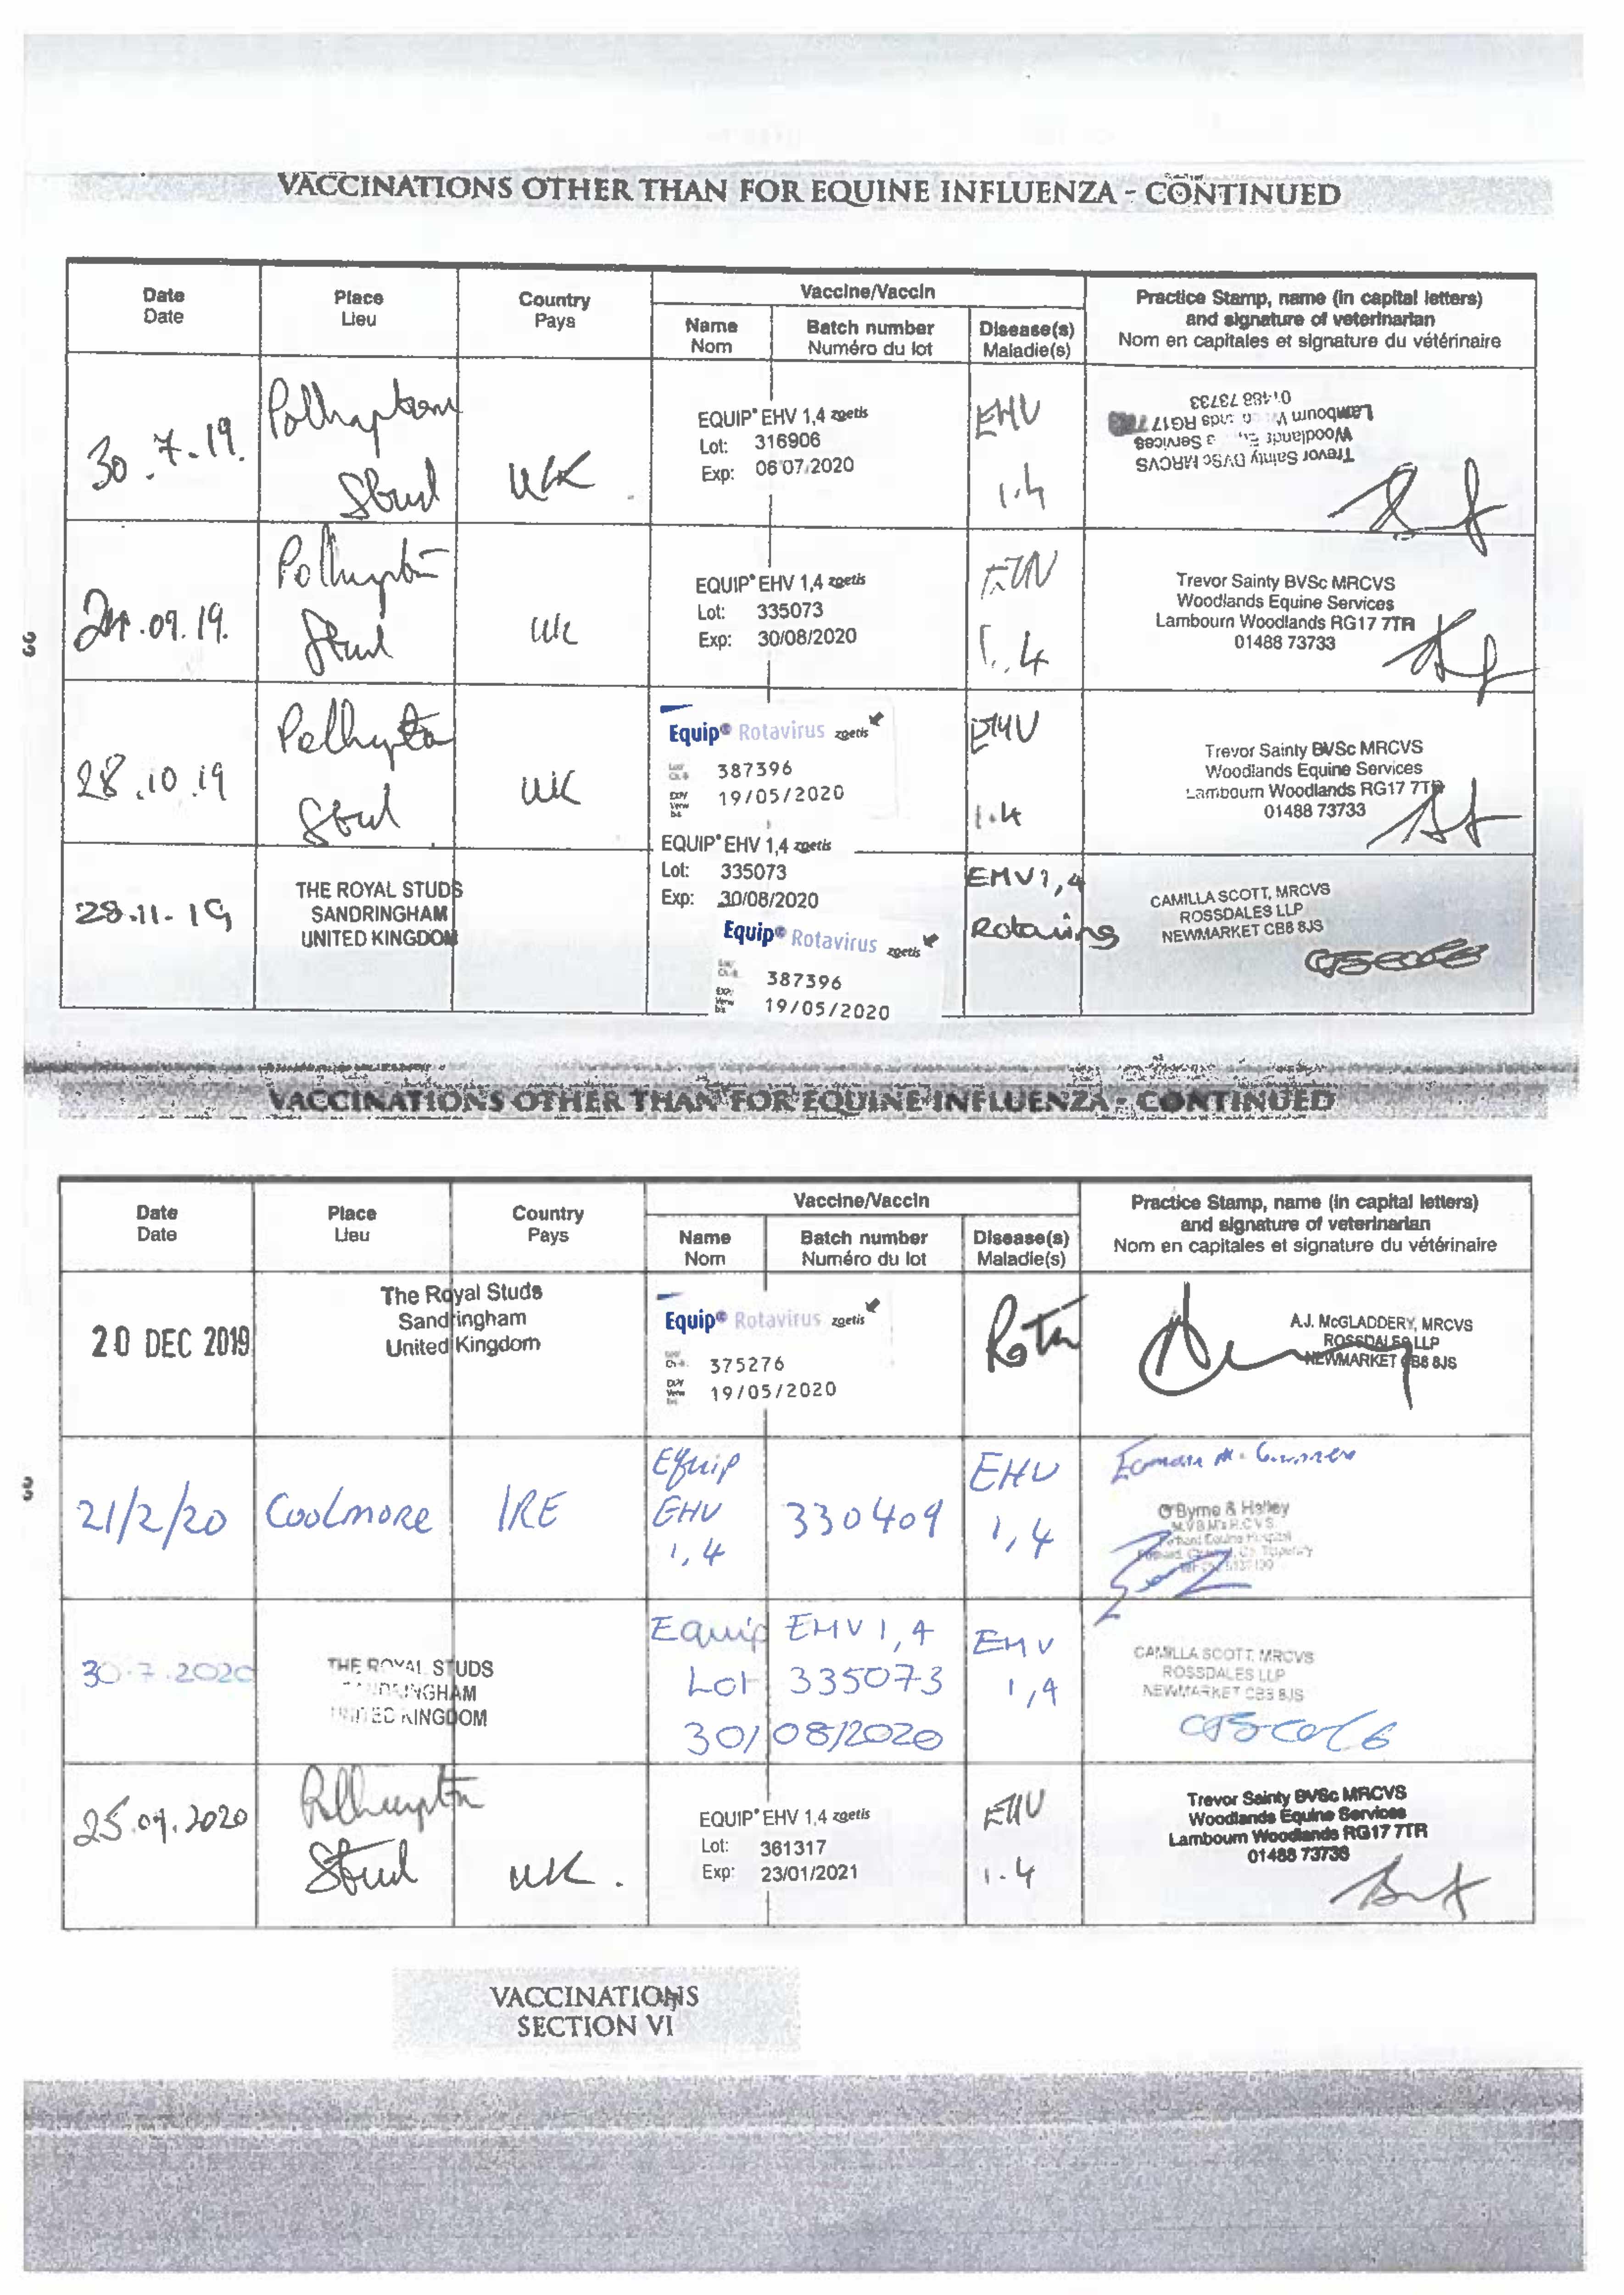 VACCINATIONS OTHER THAN FOR EQUINE INFLUENZA - CONTINUED
Date
Date
Place
Lieu
Country
Pays
Vaccine/Vaccin
Name
Nom
Batch number
Numéro du lot
Disease(s)
Maladie(s)
Practice Stamp, name (in capital letters)
and signature of veterinarian
Nom en capitales et signature du vétérinaire
30.7.19.
Polhampton
Stud
UK
EQUIP® EHV 1,4 zoetis
Lot: 316906
Exp: 06 07/2020
EHV
1.4
Trevor Sainty BVSc MRCVS
Woodlands Services
Lambourn RG17
01488 73733
24.09.19.
Polhampton
Stud
UK
EQUIP® EHV 1,4 zoetis
Lot: 335073
Exp: 30/08/2020
EHV
1.4
Trevor Sainty BVSc MRCVS
Woodlands Equine Services
Lambourn Woodlands RG17 7TR
01488 73733
28.10.19
Polhampton
Stud
UK
Equip® Rotavirus zoetis
387396
19/05/2020
EHV
1.4
Trevor Sainty BVSc MRCVS
Woodlands Equine Services
Lambourn Woodlands RG17 7TR
01488 73733
28.11.19
THE ROYAL STUDS
SANDRINGHAM
UNITED KINGDOM
EQUIP® EHV 1,4 zoetis
Lot: 335073
Exp: 30/08/2020
Equip® Rotavirus zoetis
387396
19/05/2020
EHV 1,4
Rotavirus
CAMILLA SCOTT, MRCVS
ROSSDALES LLP
NEWMARKET CB8 8JS
VACCINATIONS OTHER THAN FOR EQUINE INFLUENZA - CONTINUED
Date
Date
Place
Lieu
Country
Pays
Vaccine/Vaccin
Name
Nom
Batch number
Numéro du lot
Disease(s)
Maladie(s)
Practice Stamp, name (in capital letters)
and signature of veterinarian
Nom en capitales et signature du vétérinaire
20 DEC 2019
The Royal Studs
Sandringham
United Kingdom
Equip® Rotavirus zoetis
375276
19/05/2020
Rota
A.J. McGLADDERY, MRCVS
ROSSDALES LLP
NEWMARKET CB8 8JS
21/2/20
Coolmore
IRE
Equip
EHV
1,4
330409
EHV
1,4
O'Byrne & Halley
30.7.2020
THE ROYAL STUDS
SANDRINGHAM
UNITED KINGDOM
Equip EHV 1,4
Lot 335073
30/08/2020
EHV
1,4
CAMILLA SCOTT, MRCVS
ROSSDALES LLP
NEWMARKET CB8 8JS
25.09.2020
Polhampton
Stud
UK.
EQUIP® EHV 1,4 zoetis
Lot: 361317
Exp: 23/01/2021
EHV
1.4
Trevor Sainty BVSc MRCVS
Woodlands Equine Services
Lambourn Woodlands RG17 7TR
01488 73733
VACCINATIONS
SECTION VI